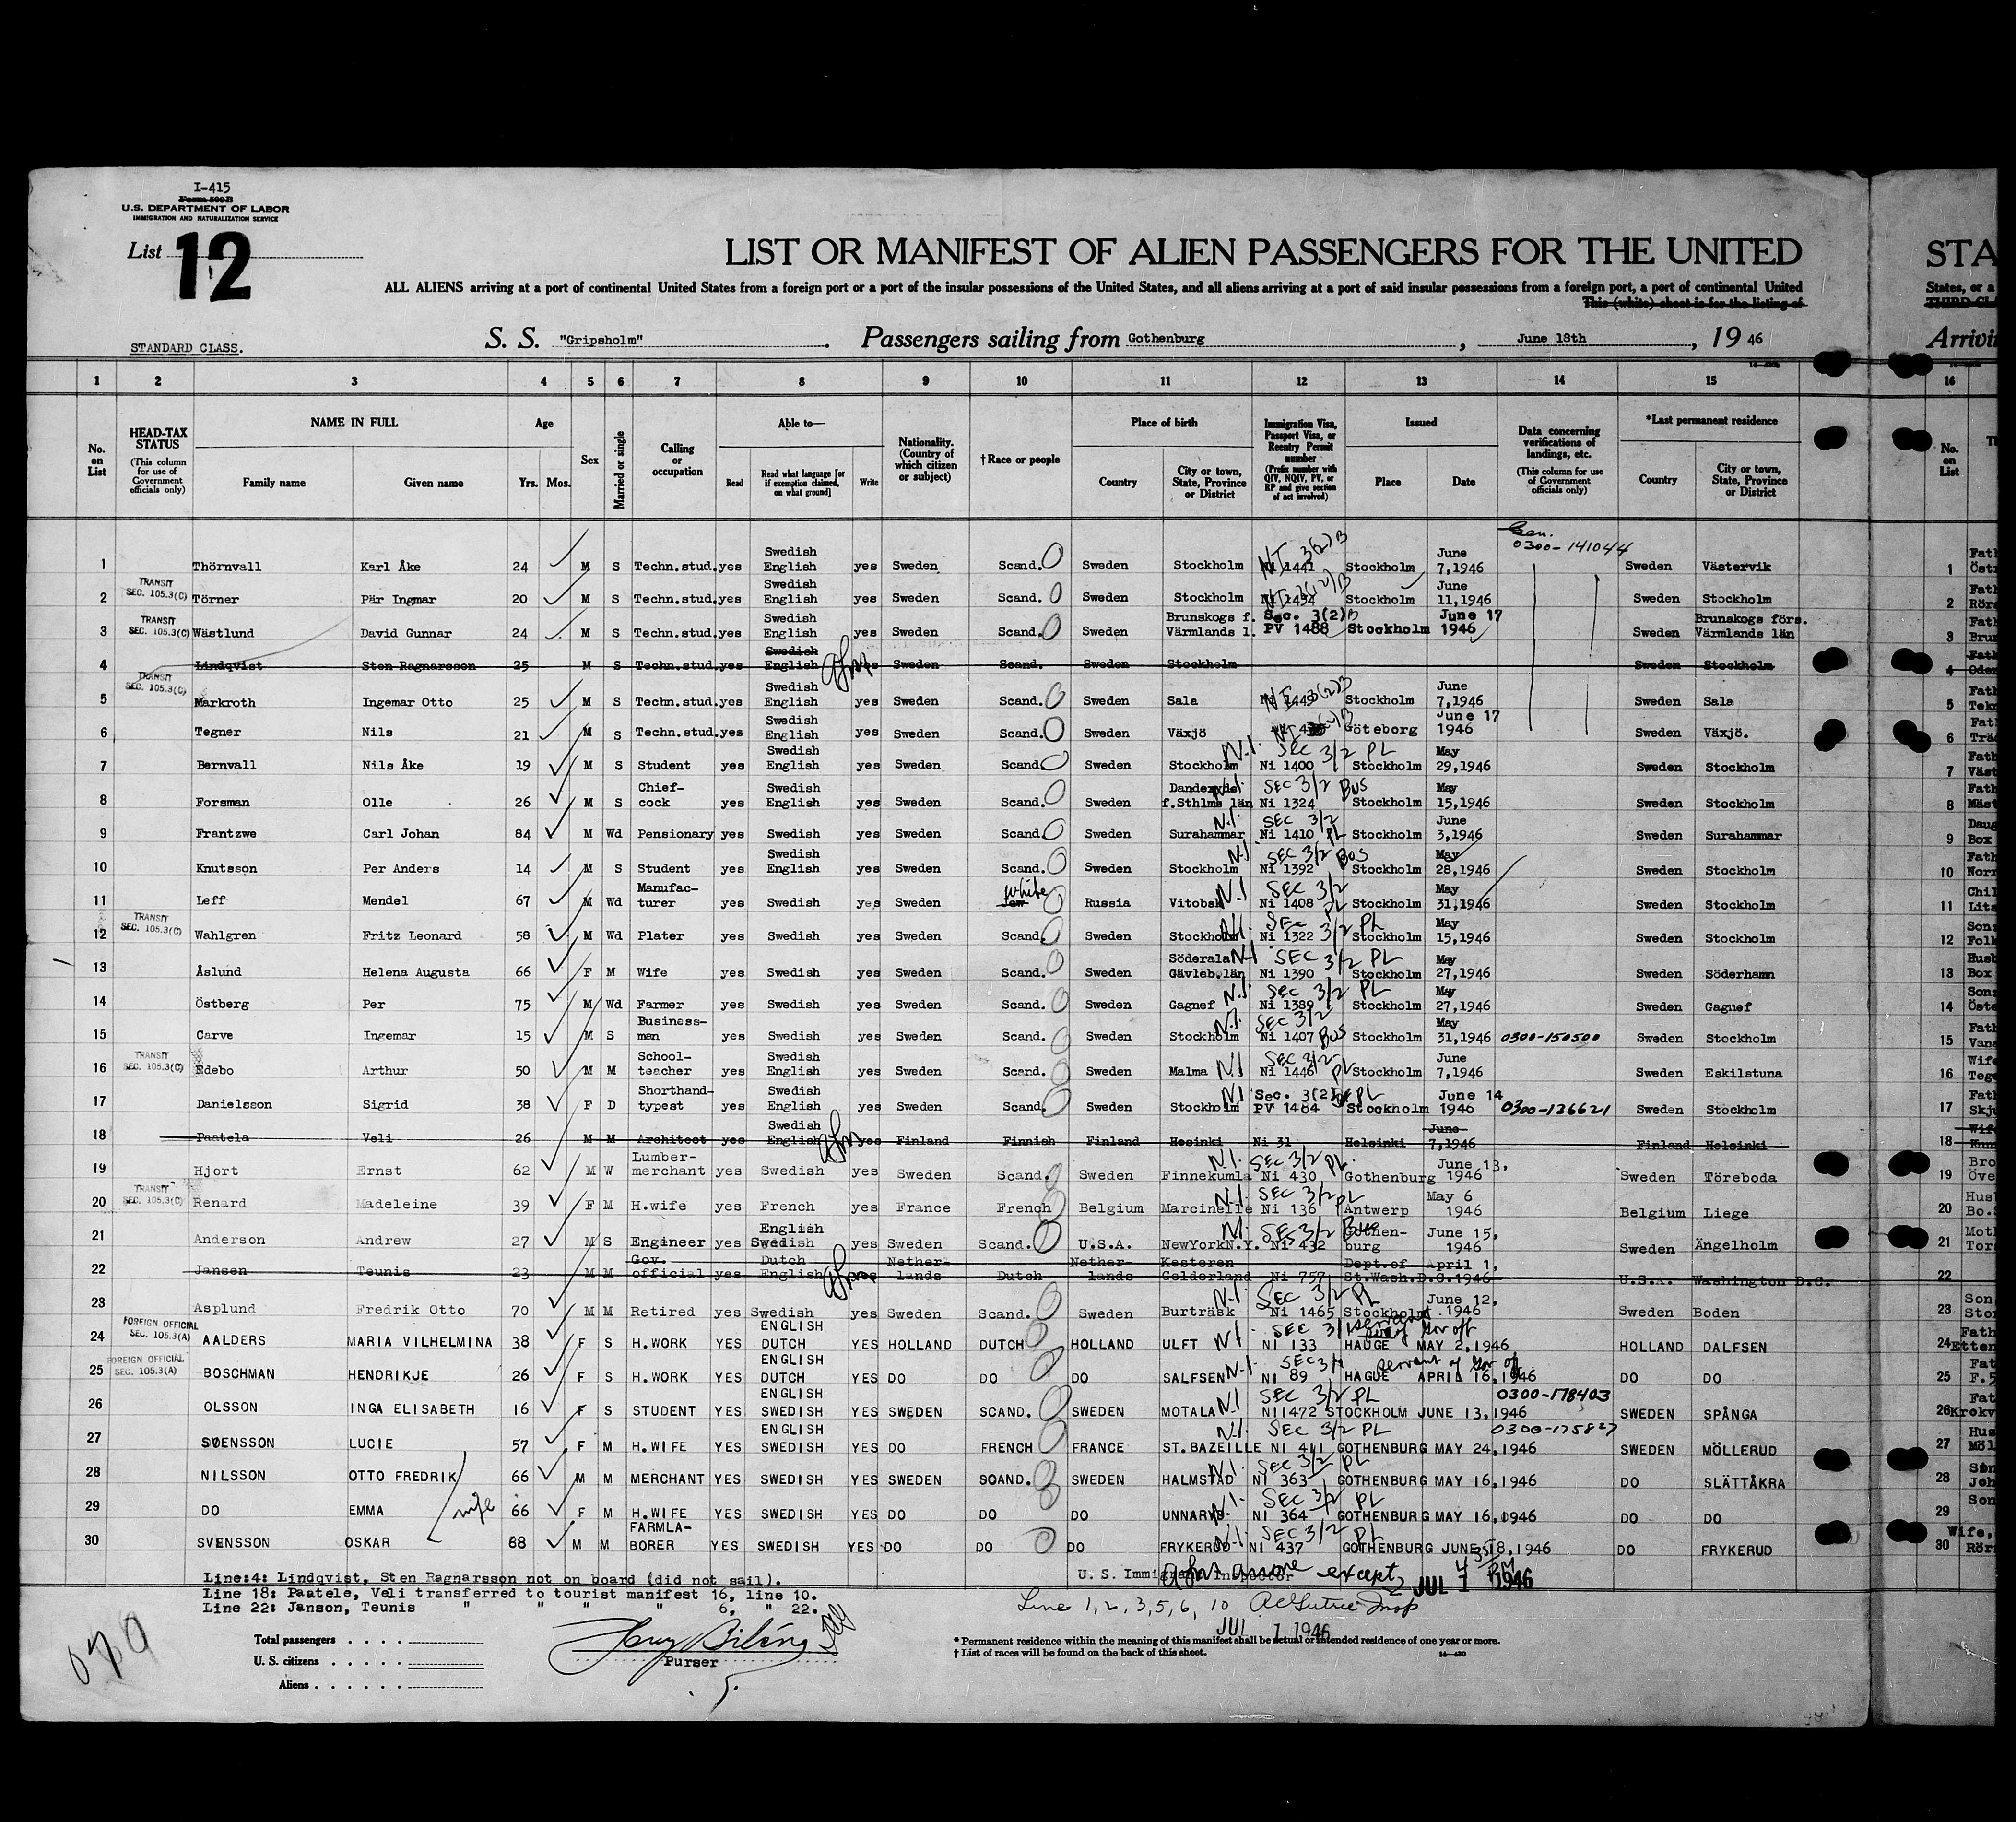 I-415
Form 500 B
U.S. DEPARTMENT OF LABOR
IMMIGRATION AND NATURALIZATION SERVICE
List 12
LIST OR MANIFEST OF ALIEN PASSENGERS FOR THE UNITED STA
ALL ALIENS arriving at a port of continental United States from a foreign port or a port of the insular possessions of the United States, and all aliens arriving at a port of said insular possessions from a foreign port, a port of continental United States, or a
This (white) sheet is for the listing of
STANDARD CLASS. S. S. "Gripsholm" . Passengers sailing from Gothenburg , June 18th , 19 46 Arrivi
1 2 3 4 5 6 7 8 9 10 11 12 13 14 15 16
No. on List
HEAD-TAX STATUS (This column for use of Government officials only)
NAME IN FULL Family name Given name
Age Yrs. Mos.
Sex
Married or single
Calling or occupation
Able to— Read Read what language [or if exemption claimed, on what ground] Write
Nationality. (Country of which citizen or subject)
†Race or people
Place of birth Country City or town, State, Province or District
Immigration Visa, Passport Visa, or Reentry Permit number (Prefix number with QIV, NQIV, PV, or RP and give section of act involved)
Issued Place Date
Data concerning verifications of landings, etc. (This column for use of Government officials only)
*Last permanent residence Country City or town, State, Province or District
No. on List
1 Thörnvall Karl Åke 24 M S Techn.stud. yes Swedish English yes Sweden Scand. Sweden Stockholm 3(2)B Stockholm June 7,1946 0300-141044 Sweden Västervik 1
TRANSIT SEC. 105.3(C)
2 Törner Pär Ingmar 20 M S Techn.stud. yes Swedish English yes Sweden Scand. Sweden Stockholm Stockholm June 11,1946 Sweden Stockholm 2
TRANSIT SEC. 105.3(C)
3 Wästlund David Gunnar 24 M S Techn.stud. yes Swedish English yes Sweden Scand. Sweden Brunskogs f. Värmlands l. Sec. 3(2)B PV 1488 Stockholm June 17 1946 Sweden Brunskogs förs. Värmlands län 3
4 Lindqvist Sten Ragnarsson 25 M S Techn.stud. yes Swedish English yes Sweden Scand. Sweden Stockholm Sweden Stockholm 4
TRANSIT SEC. 105.3(C)
5 Markroth Ingemar Otto 25 M S Techn.stud. yes Swedish English yes Sweden Scand. Sweden Sala 3(2)B Stockholm June 7,1946 Sweden Sala 5
6 Tegner Nils 21 M S Techn.stud. yes Swedish English yes Sweden Scand. Sweden Växjö Göteborg June 17 1946 Sweden Växjö. 6
7 Bernvall Nils Åke 19 M S Student yes Swedish English yes Sweden Scand. Sweden Stockholm N.I. SEC 3/2 PL Ni 1400 Stockholm May 29,1946 Sweden Stockholm 7
8 Forsman Olle 26 M S Chief-cock yes Swedish English yes Sweden Scand. Sweden f.Sthlms län SEC 3/2 BUS Ni 1324 Stockholm May 15,1946 Sweden Stockholm 8
9 Frantzwe Carl Johan 84 M Wd Pensionary yes Swedish yes Sweden Scand. Sweden Surahammar N.I. SEC 3/2 PL Ni 1410 Stockholm June 3,1946 Sweden Surahammar 9
10 Knutsson Per Anders 14 M S Student yes Swedish English yes Sweden Scand. Sweden Stockholm N.I SEC 3/2 BUS Ni 1392 Stockholm May 28,1946 Sweden Stockholm 10
11 Leff Mendel 67 M Wd Manufac-turer yes Swedish yes Sweden Jew White Russia Vitobsk N.I SEC 3/2 PL Ni 1408 Stockholm May 31,1946 Sweden Stockholm 11
TRANSIT SEC. 105.3(C)
12 Wahlgren Fritz Leonard 58 M Wd Plater yes Swedish yes Sweden Scand. Sweden Stockholm N.I. SEC 3/2 PL Ni 1322 Stockholm May 15,1946 Sweden Stockholm 12
13 Åslund Helena Augusta 66 F M Wife yes Swedish yes Sweden Scand. Sweden Söderala Gävleb.län N.I SEC 3/2 PL Ni 1390 Stockholm May 27,1946 Sweden Söderhamn 13
14 Östberg Per 75 M Wd Farmer yes Swedish yes Sweden Scand. Sweden Gagnef N.I. SEC 3/2 PL Ni 1389 Stockholm May 27,1946 Sweden Gagnef 14
15 Carve Ingemar 15 M S Business-man yes Swedish yes Sweden Scand. Sweden Stockholm N.I. SEC 3/2 BUS Ni 1407 Stockholm May 31,1946 0300-150500 Sweden Stockholm 15
TRANSIT SEC. 105.3(C)
16 Edebo Arthur 50 M M School-teacher yes Swedish English yes Sweden Scand. Sweden Malma N.I SEC 3/2 PL Ni 1446 Stockholm June 7,1946 Sweden Eskilstuna 16
17 Danielsson Sigrid 38 F D Shorthand-typest yes Swedish English yes Sweden Scand. Sweden Stockholm N.I Sec. 3(2) PL PV 1484 Stockholm June 14 1946 0300-136621 Sweden Stockholm 17
18 Paatela Veli 26 M M Architect yes Swedish English yes Finland Finnish Finland Hesinki Ni 31 Helsinki June 7,1946 Finland Helsinki 18
19 Hjort Ernst 62 M W Lumber-merchant yes Swedish yes Sweden Scand. Sweden Finnekumla N.I. SEC 3/2 PL. Ni 430 Gothenburg June 13, 1946 Sweden Töreboda 19
TRANSIT SEC. 105.3(C)
20 Renard Madeleine 39 F M H.wife yes French yes France French Belgium Marcinelle N.I. SEC 3/2 PL Ni 136 Antwerp May 6 1946 Belgium Liege 20
21 Anderson Andrew 27 M S Engineer yes English Swedish yes Sweden Scand. U.S.A. NewYorkN.Y. N.I. SEC 3/2 Bus Ni 432 Gothen-burg June 15, 1946 Sweden Ängelholm 21
22 Jansen Teunis 23 M M Gov. official yes Dutch English yes Nether-lands Dutch Nether-lands Kesteren Gelderland Ni 757 Dept.of St.Wash.D.C. April 1, 1946 U.S.A. Washington D.C. 22
23 Asplund Fredrik Otto 70 M M Retired yes Swedish yes Sweden Scand. Sweden Burträsk N.I. SEC 3/2 PL Ni 1465 Stockholm June 12, 1946 Sweden Boden 23
FOREIGN OFFICIAL SEC. 105.3(A)
24 AALDERS MARIA VILHELMINA 38 F S H.WORK YES ENGLISH DUTCH YES HOLLAND DUTCH HOLLAND ULFT N.I. SEC 3/1 servant of Gov off NI 133 HAUGE MAY 2,1946 HOLLAND DALFSEN 24
FOREIGN OFFICIAL SEC. 105.3(A)
25 BOSCHMAN HENDRIKJE 26 F S H.WORK YES ENGLISH DUTCH YES DO DO DO SALFSEN N.I. SEC 3/1 servant of Gov off NI 89 HAGUE APRIL 16,1946 DO DO 25
26 OLSSON INGA ELISABETH 16 F S STUDENT YES ENGLISH SWEDISH YES SWEDEN SCAND. SWEDEN MOTALA N.I SEC 3/2 PL NI1472 STOCKHOLM JUNE 13,1946 0300-178403 SWEDEN SPÅNGA 26
27 SVENSSON LUCIE 57 F M H.WIFE YES ENGLISH SWEDISH YES DO FRENCH FRANCE ST.BAZEILLE N.I. SEC 3/2 PL NI 411 GOTHENBURG MAY 24,1946 0300-175827 SWEDEN MÖLLERUD 27
28 NILSSON OTTO FREDRIK 66 M M MERCHANT YES SWEDISH YES SWEDEN SCAND. SWEDEN HALMSTAD N.I. SEC 3/2 PL NI 363 GOTHENBURG MAY 16,1946 DO SLÄTTÅKRA 28
29 DO EMMA wife 66 F M H.WIFE YES SWEDISH YES DO DO DO UNNARYD N.I. SEC 3/2 PL NI 364 GOTHENBURG MAY 16,1946 DO DO 29
30 SVENSSON OSKAR 68 M M FARMLA-BORER YES SWEDISH YES DO DO DO FRYKERUD N.I. SEC 3/2 PL NI 437 GOTHENBURG JUNE 18,1946 DO FRYKERUD 30
Line:4: Lindqvist, Sten Ragnarsson not on board (did not sail).
Line 18: Paatele, Veli transferred to tourist manifest 16, line 10.
Line 22: Janson, Teunis " " " " 6, " 22.
U. S. Immigration Inspector except JUL 1 1946
Line 1, 2, 3, 5, 6, 10
JUL 1 1946
Total passengers . . . .
U. S. citizens . . . . .
Aliens . . . . . .
Purser
* Permanent residence within the meaning of this manifest shall be actual or intended residence of one year or more.
† List of races will be found on the back of this sheet.